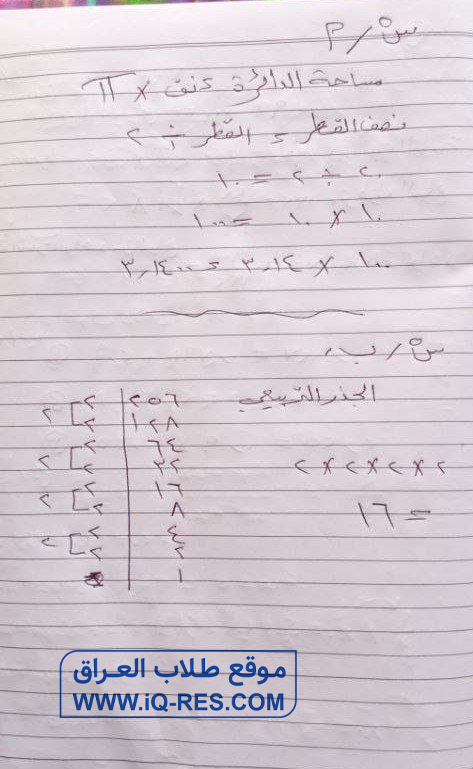 س٥/ P
مساحة الدائرة = نق٢ × π
نصف القطر = القطر ÷ ٢
٢٠ ÷ ٢ = ١٠
١٠ × ١٠ = ١٠٠
١٠٠ × ٣,١٤ = ٣,١٤٠٠
س٥/ ب،
الجذر التربيعي
٢٥٦ | ٢
١٢٨ | ٢ ] ٢
٦٤ | ٢
٣٢ | ٢ ] ٢
١٦ | ٢
٨ | ٢ ] ٢
٤ | ٢
٢ | ٢ ] ٢
١
٢ × ٢ × ٢ × ٢
= ١٦
موقع طلاب العراق
WWW.iQ-RES.COM